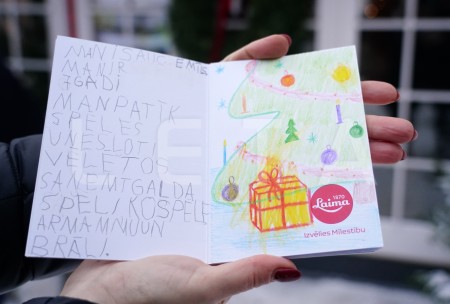 MANI SAUC EMIS
MAN IR
7GADI
MANPATIK
SPELES
UNESLOTI
VĒLĒTOS
SAŅEMTGALDA
SPELI KO SPELĒ
ARMAMMUUN
BRĀLI.
1870
Laima
Izvēlies Mīlestību